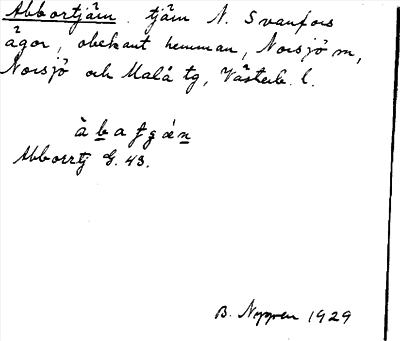 Abbortjärn. tjärn N. Svanfors
ägor, obekant hemman, Norsjö sn,
Norsjö och Malå tg, Västerb. l.
àbafgǽn
Abborrtj G. 43.
B. 1929